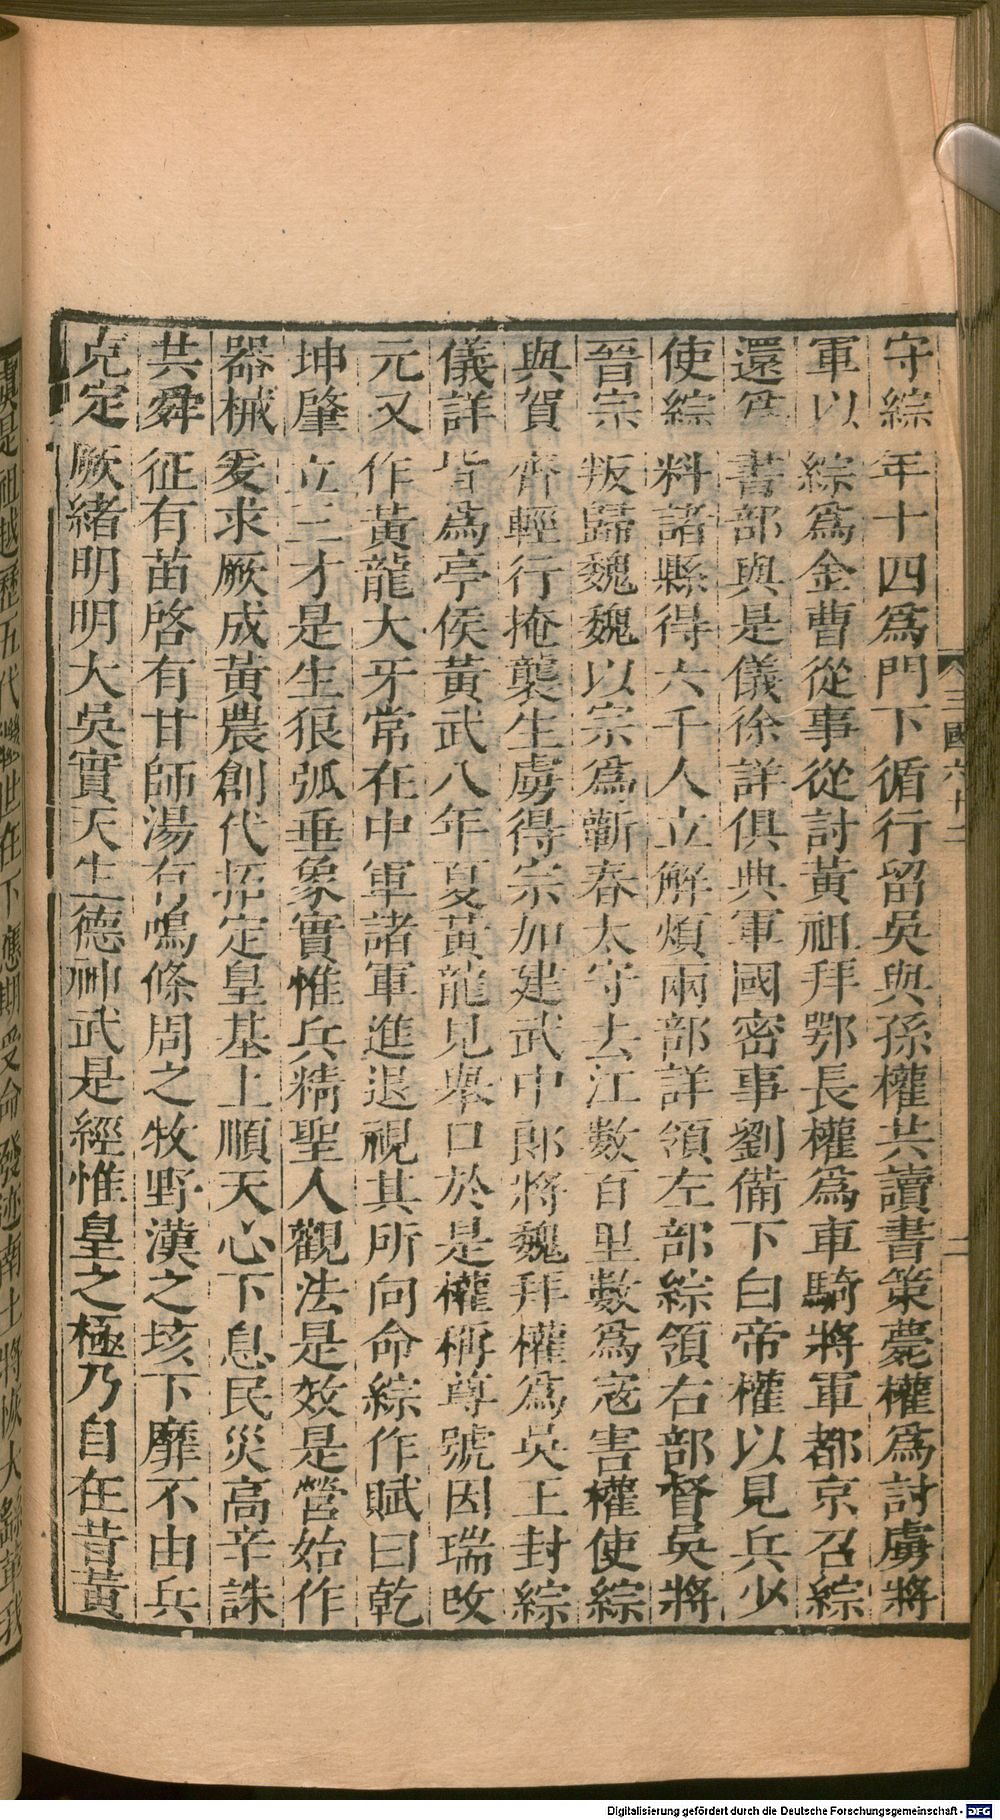 守綜年十四爲門下循行留吳與孫權共讀書策薨權爲討虜將
軍以綜爲金曹從事從討黃祖拜鄂長權爲車騎將軍都京召綜
還爲書部與是儀徐詳俱典軍國密事劉備下白帝權以見兵少
使綜料諸縣得六千人立解煩兩部詳領左部綜領右部督吳將
晉宗叛歸魏魏以宗爲蘄春太守去江數百里數爲寇害權使綜
與賀齊輕行掩襲生虜得宗加建武中郎將魏拜權爲吳王封綜
儀詳皆爲亭侯黃武八年夏黃龍見舉口於是權稱尊號因瑞改
元又作黃龍大牙常在中軍諸軍進退視其所向命綜作賦曰乾
坤肇立三才是生狼弧垂象實惟兵精聖人觀法是效是營始作
器械爰求厥成黃農創代拓定皇基上順天心下息民災高辛誅
共舜征有苗啓有甘師湯有鳴條周之牧野漢之垓下靡不由兵
克定厥緒明明大吳實天生德神武是經惟皇之極乃自在昔黃
虞是祖越歷五代繼世在下應期受命發迹南土將恢大繇革我
三國六十二